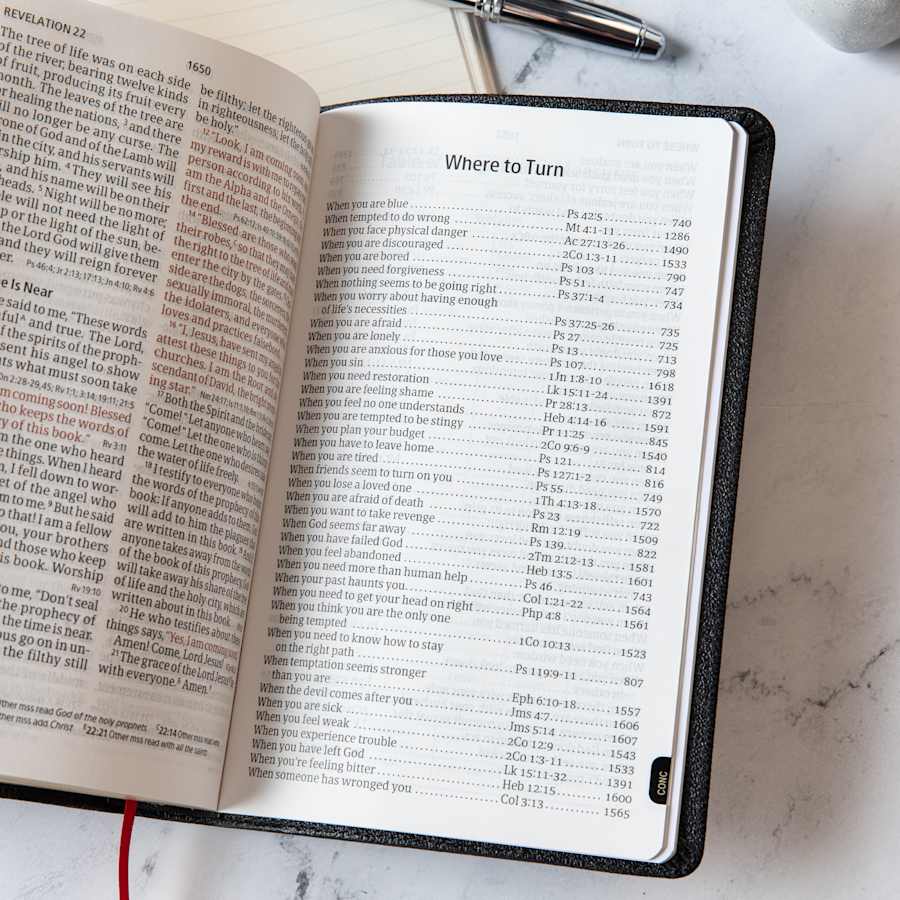 REVELATION 22
1650
The tree of life was on each side
of the river, bearing twelve kinds
of fruit, producing its fruit every
month. The leaves of the tree are
healing the nations, ³ and there
ill no longer be any curse. The
rone of God and of the Lamb will
in the city, and his servants will
rship him. ⁴ They will see his
and his name will be on their
heads. ⁵ Night will be no more;
le will not need the light of
p or the light of the sun, be-
the Lord God will give them
and they will reign forever
er. Ps 46:4; Jr 2:13; 17:13; Jn 4:10; Rv 4:6
e Is Near
e said to me, "These words
ful and true. The Lord,
f the spirits of the proph-
sent his angel to show
ts what must soon take
Dn 2:28-29,45; Rv 1:1; 3:14; 19:11; 21:5
m coming soon! Blessed
who keeps the words of
y of this book." Rv 3:11
m the one who heard
e things. When I heard
, I fell down to wor-
et of the angel who
m to me. ⁹ But he said
that! I am a fellow
ou, your brothers
nd those who keep
is book. Worship
Rv 19:10
to me, "Don't seal
the prophecy of
the time is near.
us go on in un-
the filthy still
be filthy; let the righteous
in righteousness; let the
be holy."
¹² "Look, I am coming
my reward is with me to repay
person according to his
am the Alpha and the Omega,
first and the last, the beginning
the end.
¹⁴ "Blessed are those who
their robes, so that they may
the right to the tree of life
enter the city by the gates.
side are the dogs, the sorcerers,
sexually immoral, the murderers,
the idolaters, and everyone
loves and practices falsehood.
¹⁶ "I, Jesus, have sent my angel
attest these things to you
churches. I am the Root and
scendant of David, the bright
ing star."
¹⁷ Both the Spirit and the bride
"Come!" Let anyone who hears
"Come!" Let the one who
come. Let the one who desires
the water of life freely.
¹⁸ I testify to everyone who
the words of the prophecy of
book: If anyone adds to them,
will add to him the plagues
are written in this book. ¹⁹ And
anyone takes away from the words
of the book of this prophecy, God
will take away his share of the
of life and the holy city, which
written about in this book.
²⁰ He who testifies about these
things says, "Yes, I am coming soon."
Amen! Come, Lord Jesus!
²¹ The grace of the Lord Jesus be
with everyone. Amen.
Other mss read God of the holy prophets 22:14 Other mss read
Other mss add Christ 22:21 Other mss read with all the saints
Where to Turn
When you are blue Ps 42:5 740
When tempted to do wrong Mt 4:1-11 1286
When you face physical danger Ac 27:13-26 1490
When you are discouraged 2Co 1:3-11 1533
When you are bored Ps 103 790
When you need forgiveness Ps 51 747
When nothing seems to be going right Ps 37:1-4 734
When you worry about having enough
of life's necessities Ps 37:25-26 735
When you are afraid Ps 27 725
When you are lonely Ps 13 713
When you are anxious for those you love Ps 107 798
When you sin 1Jn 1:8-10 1618
When you need restoration Lk 15:11-24 1391
When you are feeling shame Pr 28:13 872
When you feel no one understands Heb 4:14-16 1591
When you are tempted to be stingy Pr 11:25 845
When you plan your budget 2Co 9:6-9 1540
When you have to leave home Ps 121 814
When you are tired Ps 127:1-2 816
When friends seem to turn on you Ps 55 749
When you lose a loved one 1Th 4:13-18 1570
When you are afraid of death Ps 23 722
When you want to take revenge Rm 12:19 1509
When God seems far away Ps 139 822
When you have failed God 2Tm 2:12-13 1581
When you feel abandoned Heb 13:5 1601
When you need more than human help Ps 46 743
When your past haunts you Col 1:21-22 1564
When you need to get your head on right Php 4:8 1561
When you think you are the only one
being tempted 1Co 10:13 1523
When you need to know how to stay
on the right path Ps 119:9-11 807
When temptation seems stronger
than you are Eph 6:10-18 1557
When the devil comes after you Jms 4:7 1606
When you are sick Jms 5:14 1607
When you feel weak 2Co 12:9 1543
When you experience trouble 2Co 1:3-11 1533
When you have left God Lk 15:11-32 1391
When you're feeling bitter Heb 12:15 1600
When someone has wronged you Col 3:13 1565
CONC